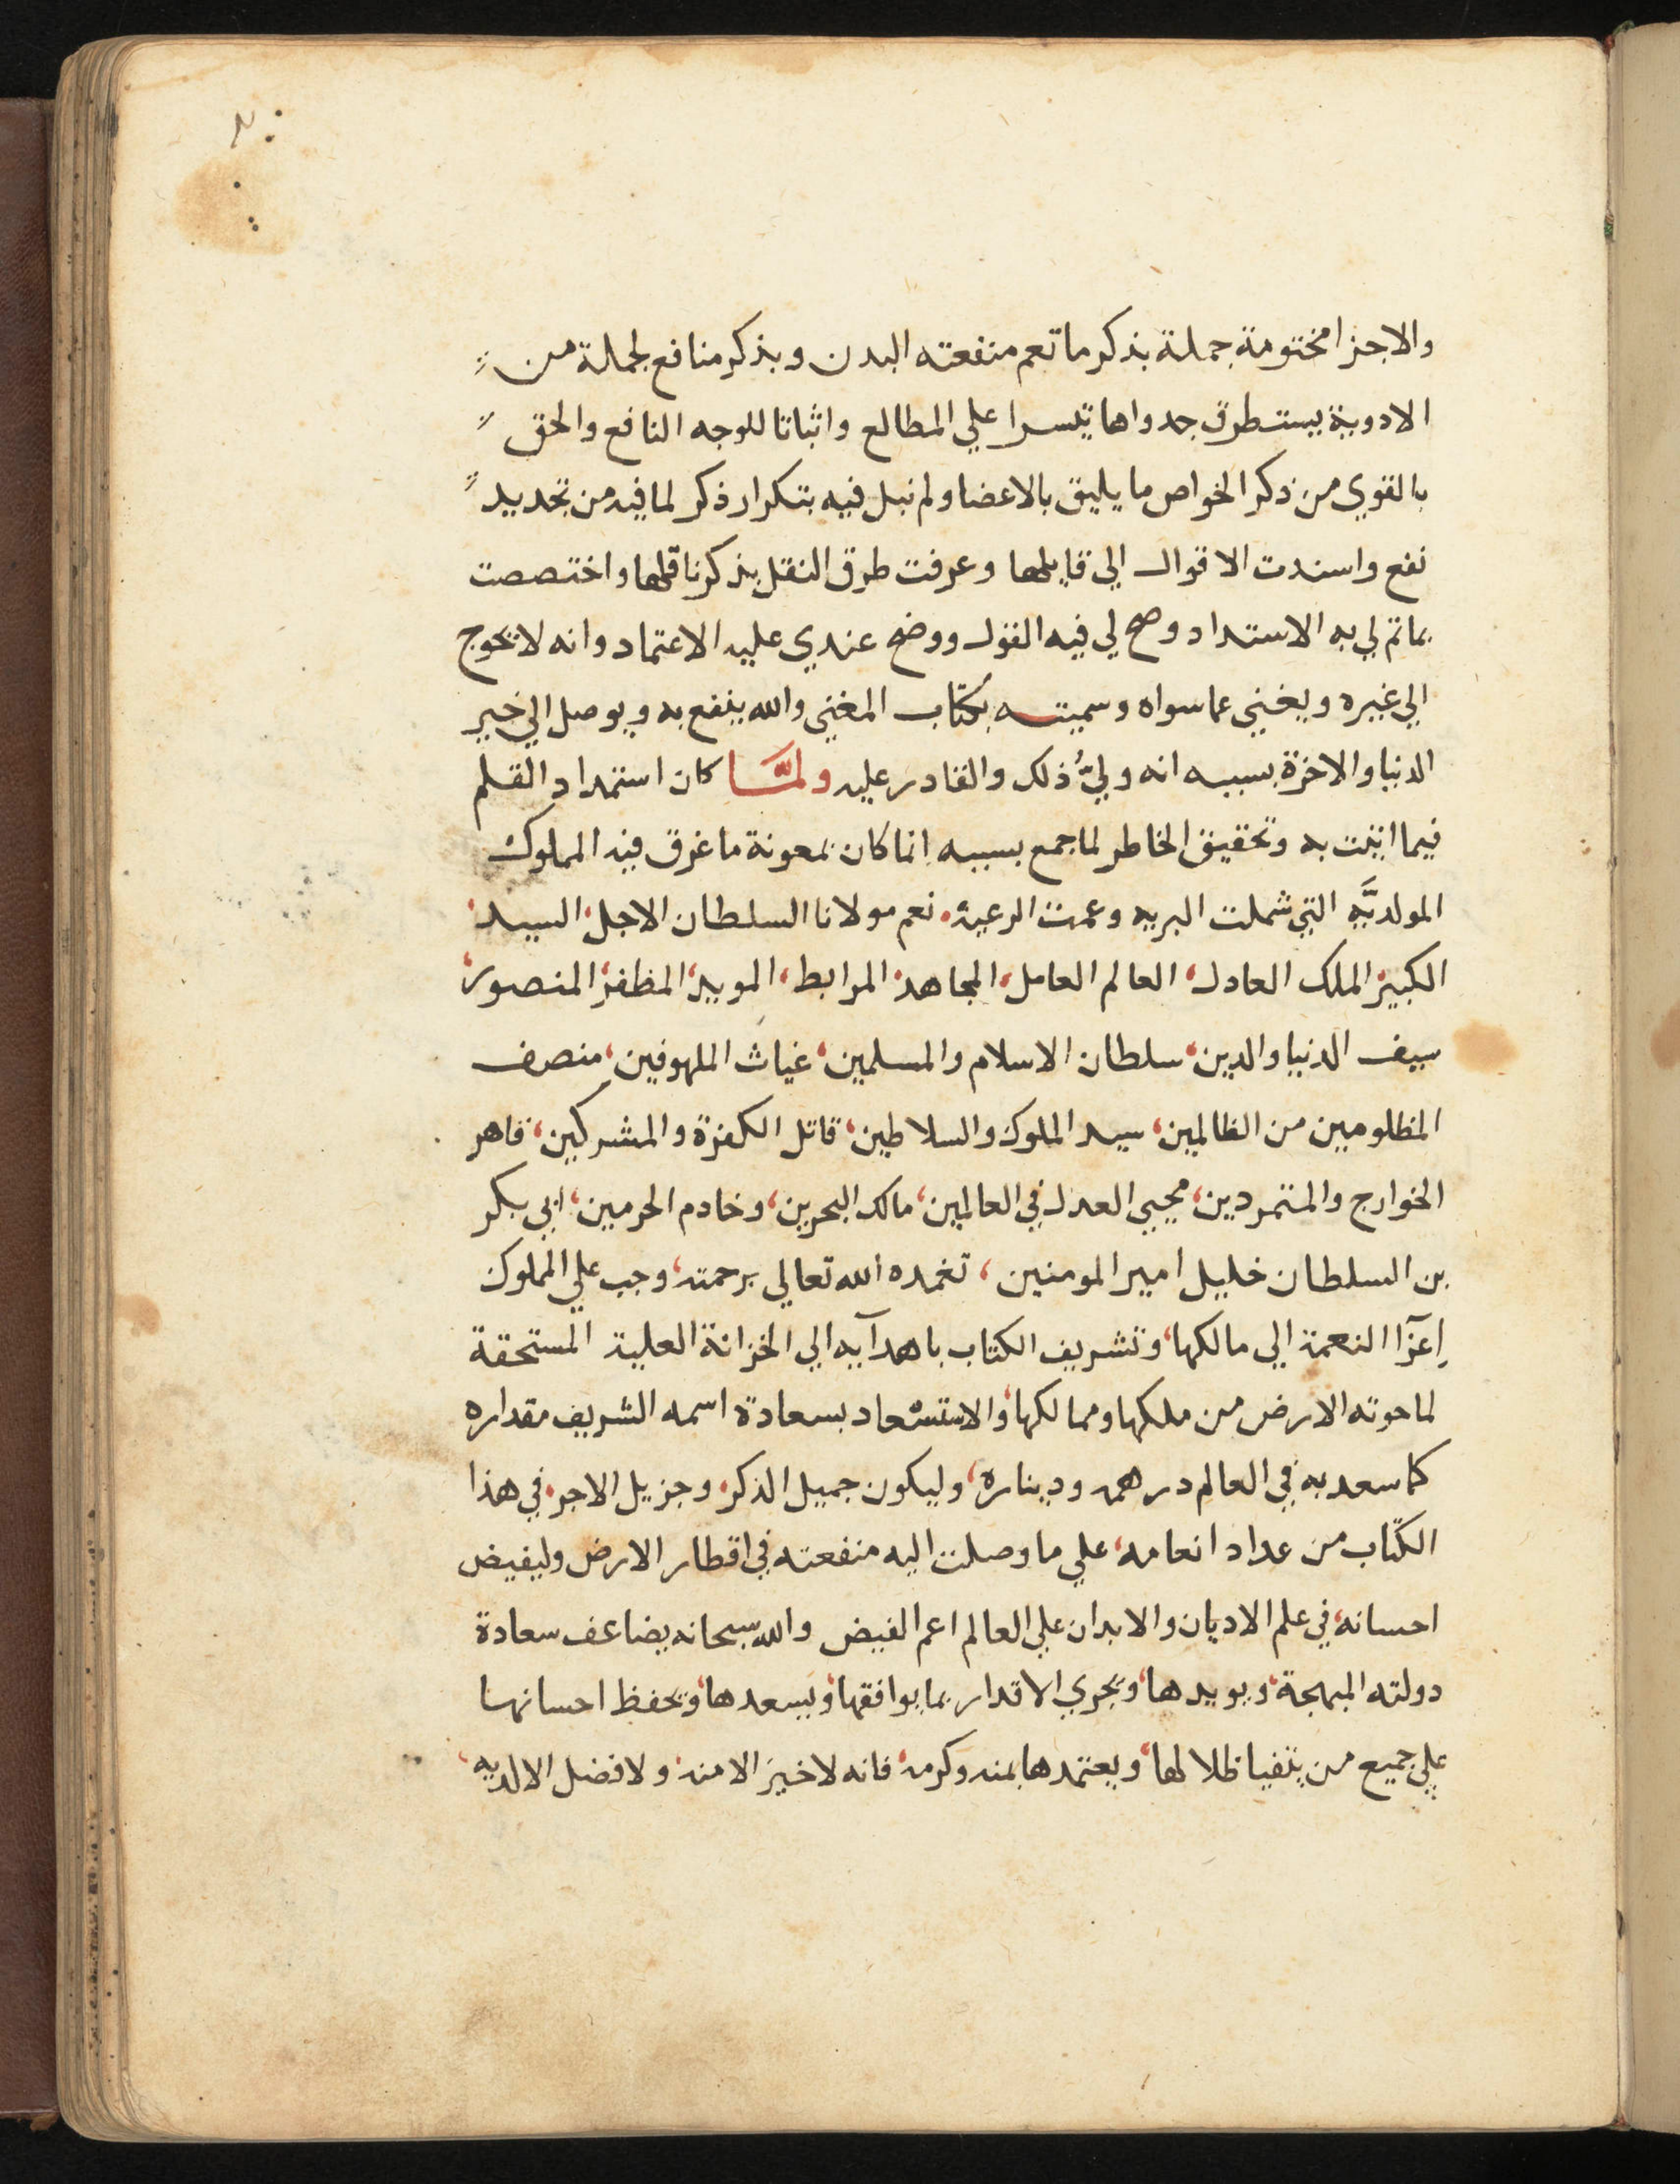 والاجزا مختومة جملة بذكر ما تعم منفعته البدن وبذكر منافع لجملة من
الادوية يستطرق جدواها تيسرا علي المطالع واثباتا للوجه النافع والحق
بالقوي من ذكر الخواص ما يليق بالاعضا ولم نبل فيه بتكرار ذكر لما فيه من تجديد
نفع واسندت الاقوال الي قايلها وعرفت طرق النقل بذكر ناقلها واختصصت
بما تم لي به الاستداد وصح لي فيه القول ووضح عندي عليه الاعتماد وانه لا يحوج
الي غيره ويغني عما سواه وسميته بكتاب المغني والله ينفع به ويوصل الي خير
الدنيا والاخرة بسببه انه وليُّ ذلك والقادر عليه ولمَّا كان استمداد القلم
فيما اتيت به وتحقيق الخاطر لما جمع بسببه انما كان بمعونة ما غرق فيه المملوك
المولديَّه التي شملت البريه وعمت الرعية، نعم مولانا السلطان الاجل، السيد،
الكبير، الملك العادل، العالم العامل، المجاهد، المرابط، المويد، المظفر، المنصور،
سيف الدنيا والدين، سلطان الاسلام والمسلمين، غياث الملهوفين، منصف
المظلومين من الظالمين، سيد الملوك والسلاطين، قاتل الكفرة والمشركين، قاهر
الخوارج والمتمردين، محيي العدل في العالمين، مالك البحرين، وخادم الحرمين، ابي بكر
بن السلطان خليل امير المومنين، تغمده الله تعالي برحمته، وجب علي المملوك
اِعزآا النعمة الي مالكها، وتشريف الكتاب باهدآيه الي الخزانة العلية المستحقة
لما حوته الارض من ملكها وممالكها، والاستسعاد بسعادة اسمه الشريف مقداره
كما سعد به في العالم درهمه وديناره، وليكون جميل الذكر، وجزيل الاجر، في هذا
الكتاب من عداد انعامه، علي ما وصلت اليه منفعته في اقطار الارض وليفيض
احسانه، في علم الاديان والابدان علي العالم اعم الفيض والله سبحانه يضاعف سعادة
دولته المبهجة، ويويدها، ويجري الاقدار بما يوافقها، ويسعدها، ويحفظ احسانها
علي جميع من يتفيا ظلالها، ويعتمدها بمنه وكرمه، فانه لا خير الا منه، ولا فضل الا لديه،